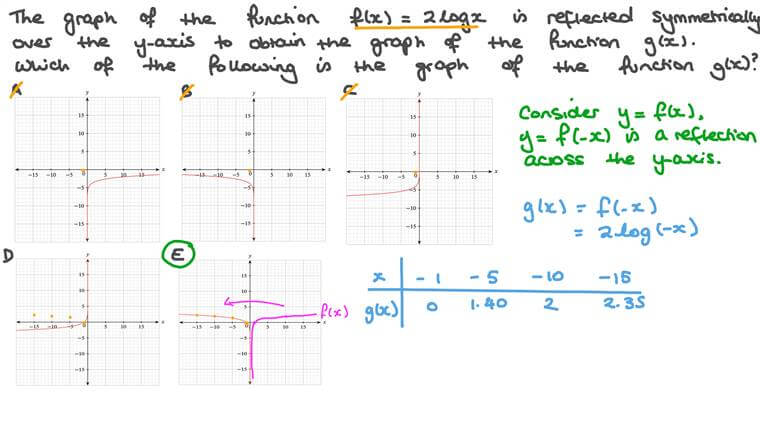 The graph of the function f(x) = 2logx is reflected symmetrically
over the y-axis to obtain the graph of the function g(x).
Which of the following is the graph of the function g(x)?
A
B
C
y
15
10
5
0
-5
-10
-15
-15 -10 -5 5 10 15 x
y
15
10
5
0
-5
-10
-15
-15 -10 -5 5 10 15 x
y
15
10
5
0
-5
-10
-15
-15 -10 -5 5 10 15 x
Consider y = f(x),
y = f(-x) is a reflection
across the y-axis.
g(x) = f(-x)
= 2log(-x)
D
E
y
15
10
5
0
-5
-10
-15
-15 -10 -5 5 10 15 x
y
15
10
5
0
-5
-10
-15
-15 -10 -5 5 10 15 x
f(x)
x -1 -5 -10 -15
g(x) 0 1.40 2 2.35